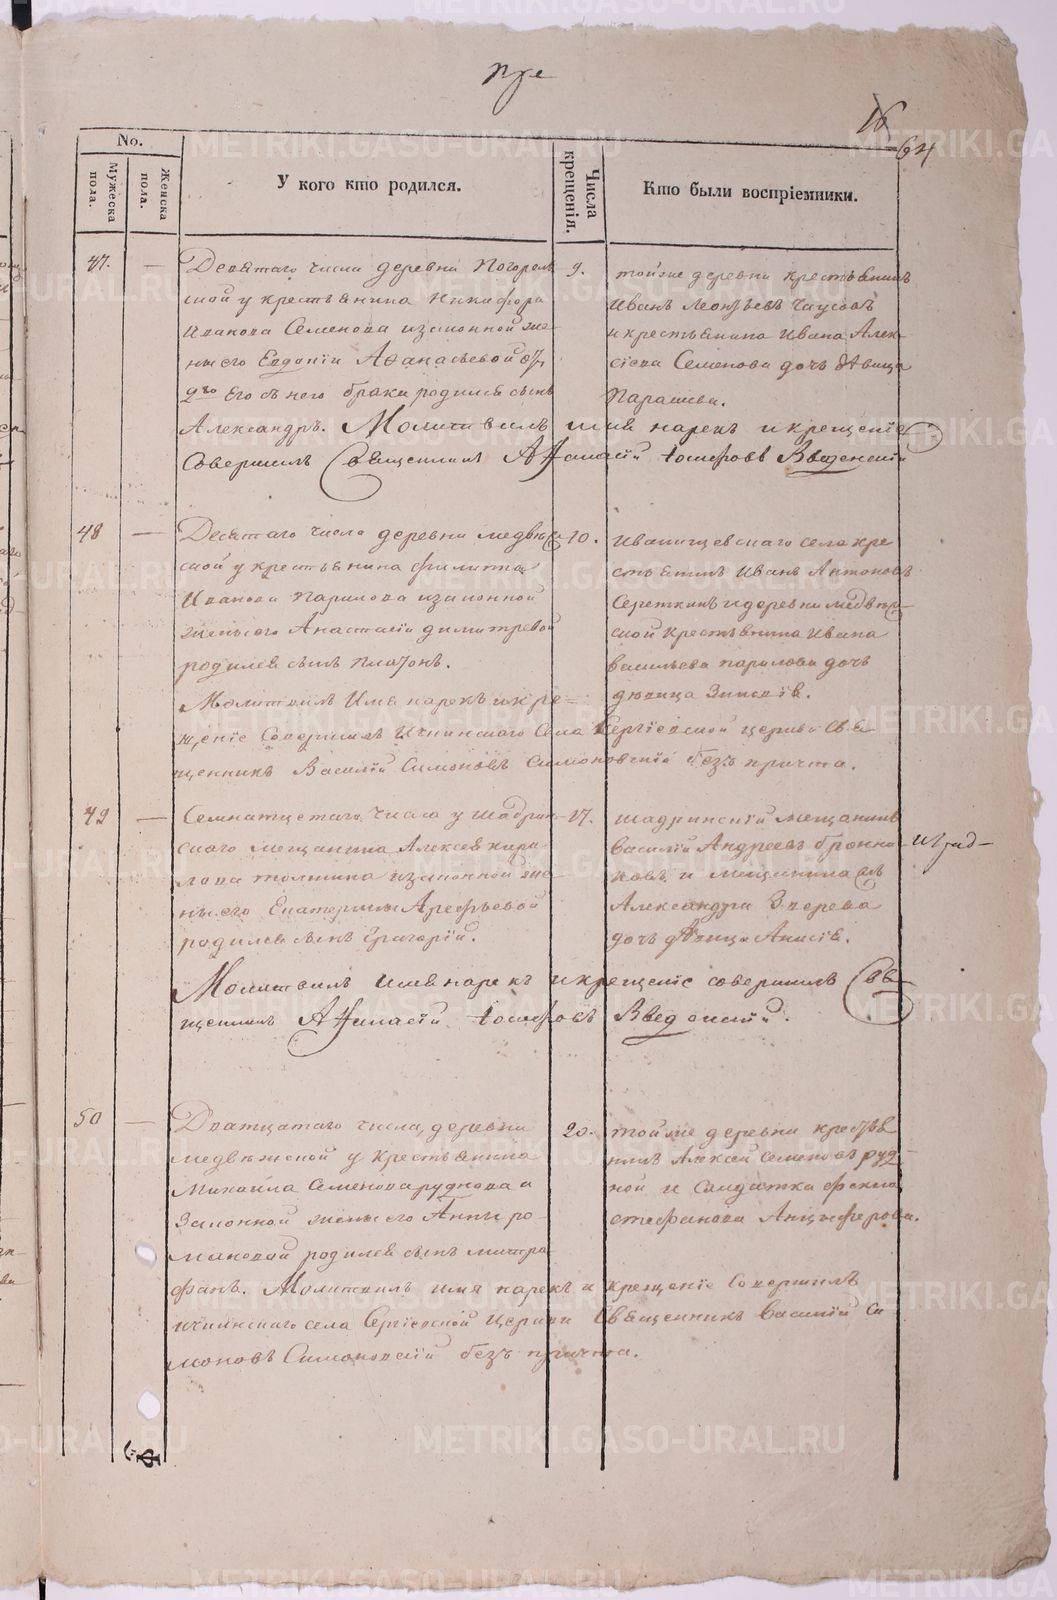 16
64
No.
Мужеска пола.
Женска пола.
У кого кто родился.
Числа крещенія.
Кто были воспріемники.
47. — Девятаго числа деревни Погорел-
ской у крестьянина Никифора
Иванова Семенова изаконной же-
ны его Евдокіи Афанасьевой от
2го Его съ него брака родился сынъ
Александръ. Молитвилъ имя нарекъ и крещеніе
Совершилъ Священникъ Афанасій Іосифовъ Введенскій
9. тойже деревни крестьянинъ
Иванъ Леонтьевъ Чаусовъ
и крестьянина Ивана Алек-
сіева Семенова дочь девица
Парасева.
48 — Десятаго числа деревни медвеж-
ской у крестьянина филиппа
Иванова Парилова изаконной
жены его Анастасіи димитревой
родился сынъ Платонъ.
Молитвилъ Имя нарекъ и кре=
щеніе Совершилъ Ичкинскаго Села Сергіевской церкви Свя
щенникъ Василій Симоновъ Симоновскій безъ причта.
10. Иванищевскаго села кре
стьянинъ Иванъ Антоновъ
Сереткинъ и деревни медвеж-
ской крестьянина Ивана
васильева парилова дочь
девица
49 — Семнатцетаго числа у шадрин-
скаго мещанина Алексея кири-
лова изаконной же-
ны его Екатерины Арефьевой
родился сынъ Григорій.
Молитвилъ имя нарекъ и крещеніе совершилъ Свя
щенникъ Афанасій Іосифовъ Введенскій.
17. шадринскій мещанинъ
василій Андреевъ бронни-
ковъ и мещанина
Александра Зверева
дочь девица Анисія.
50 — Дватцатаго числа, деревни
медвежской у крестьянина
Михаила Семенова руднова и
Законной жены его Анны ро-
мановой родился сынъ митро
фанъ. Молитвилъ имя нарекъ и крещеніе Совершилъ
ичкинскаго села Сергіевской Церкви Священникъ Василій Си
моновъ Симоновскій безъ причта.
20. тойже деревни крестья
нинъ Алексей Семеновъ руд-
ной и Салдатка фекла
стефанова Анцыферова.
METRIKI.GASO-URAL.RU